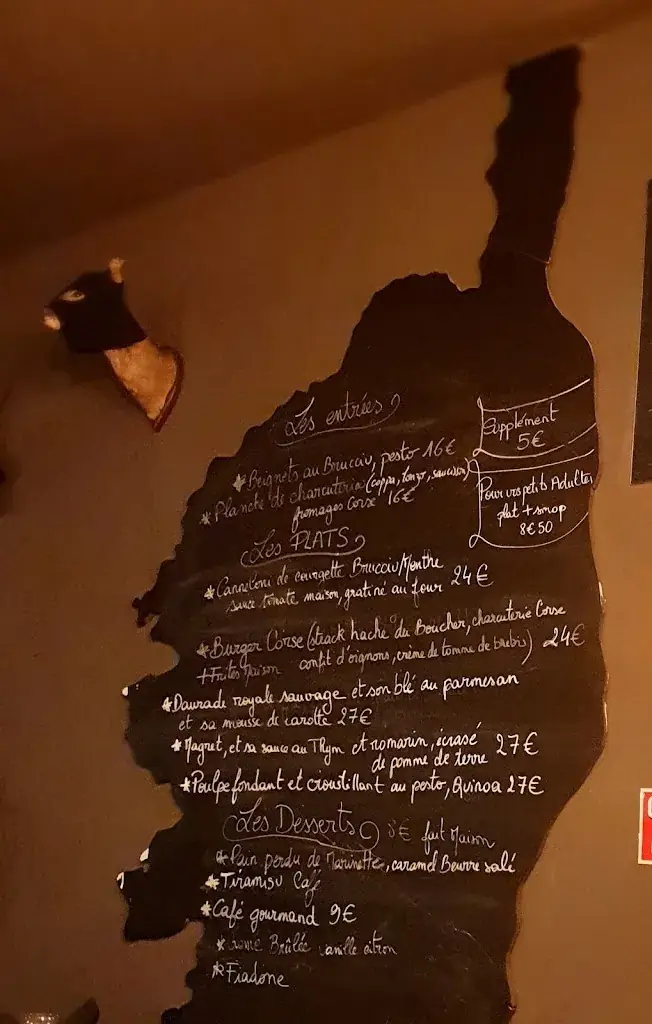 Les entrées
* Beignets au Brucciu, pesto 16€
* Planche de charcuterie (coppa, lonzo, saucisson)
fromages Corse 16€
Supplément
5€
Pour vos petits Adultes
plat + sirop
8€50
Les PLATS
* Canneloni de courgette Brucciu/Menthe
sauce tomate maison, gratiné au four 24€
* Burger Corse (steack haché du Boucher, charcuterie Corse
+ Frites Maison confit d'oignons, crème de tomme de brebis) 24€
* Daurade royale sauvage et son blé au parmesan
et sa mousse de carotte 27€
* Magret, et sa sauce au Thym et romarin, écrasé
de pomme de terre 27€
* Poulpe fondant et croustillant au pesto, Quinoa 27€
Les Desserts 8€ fait Maison
* Pain perdu de Marinette, caramel Beurre salé
* Tiramisu Café
* Café gourmand 9€
* Crème Brûlée vanille citron
* Fiadone